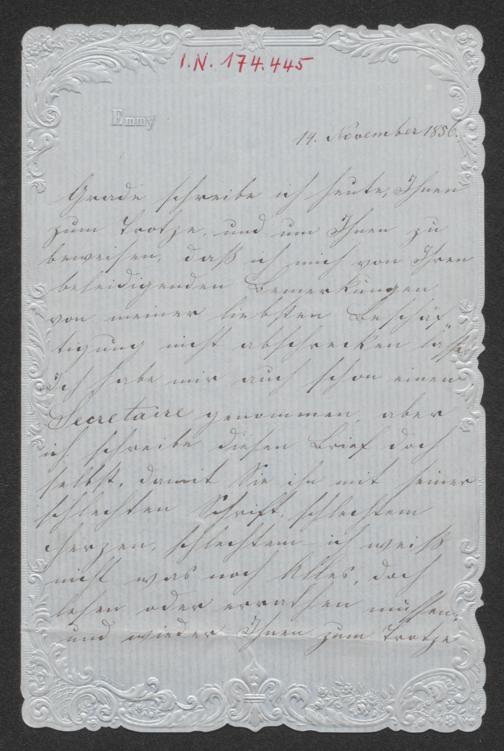 I.N. 174.445
Emmy
14. November 1856.
Grade schreibe ich heute, Ihnen
zum Trotze, und um Ihnen zu
beweisen, daß ich mich von Ihren
beleidigenden Bemerkungen
von meiner liebsten Beschäf
tigung nicht abschrecken laße
Ich habe mir auch schon einen
Secretaire genommen, aber
ich schreibe diesen Brief doch
selbst, damit Sie ihn mit seiner
schlechten Schrift, schlechtem
Herzen, schlechtem ich weiß
nicht was noch Alles, doch
lesen oder errathen müssen,
und wieder Ihnen zum Trotze